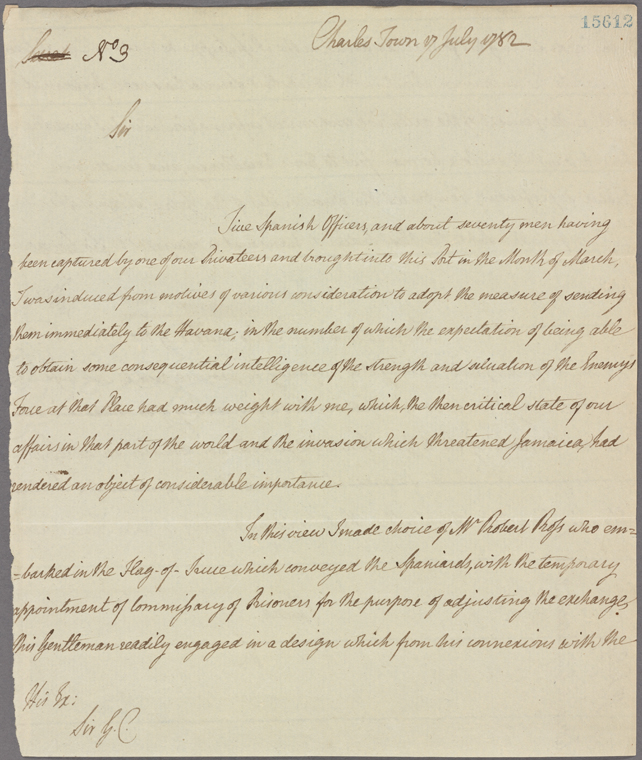 15612
Secret No 3
Charles Town 17 July 1782
Sir
Five Spanish Officers, and about seventy men having
been captured by one of our Privateers and brought into this Port in the Month of March,
I was induced from motives of various consideration to adopt the measure of sending
them immediately to the Havana; in the number of which the expectation of being able
to obtain some consequential intelligence of the strength and situation of the Enemy's
Force at that Place had much weight with me, which, the then critical state of our
affairs in that part of the world and the invasion which threatened Jamaica, had
rendered an object of considerable importance.
In this view I made choice of Mr Robert Ross who em=
=barked in the Flag-of-Truce which conveyed the Spaniards, with the temporary
appointment of Commissary of Prisoners for the purpose of adjusting the exchange,
this Gentleman readily engaged in a design which from his connexions with the
His Ex:
Sir G. C.